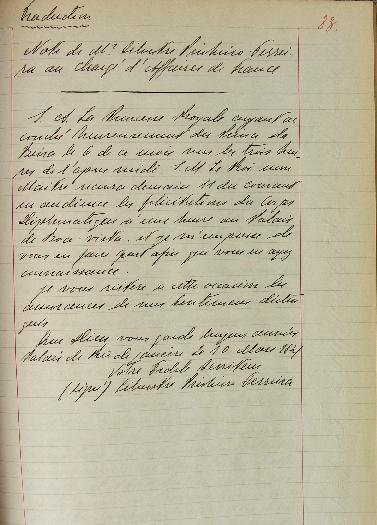 Traduction
28.
Note de Mr Silvestre Pinheiro Ferrei-
ra au Chargé d'Affaires de France
S. A. La Princesse Royale ayant ac-
couché heureusement du Prince da
Beira le 6 de ce mois vers les trois heu-
res de l'après midi S. M. Le Roi mon
Maître recevra demain 11 du courant
en audience les félicitations du Corps
Diplomatique à une heure au Palais
de Boa-vista, et je m'empresse de
vous en faire part afin que vous en ayez
connaissance.
Je vous réitère à cette occasion les
assurances de mes sentimens distin-
gués
Que Dieu vous garde longues années
Palais de Rio de Janeiro le 10 Mars 1821
Votre Fidele Serviteur
(Signé) Silvestre Pinheiro Ferreira